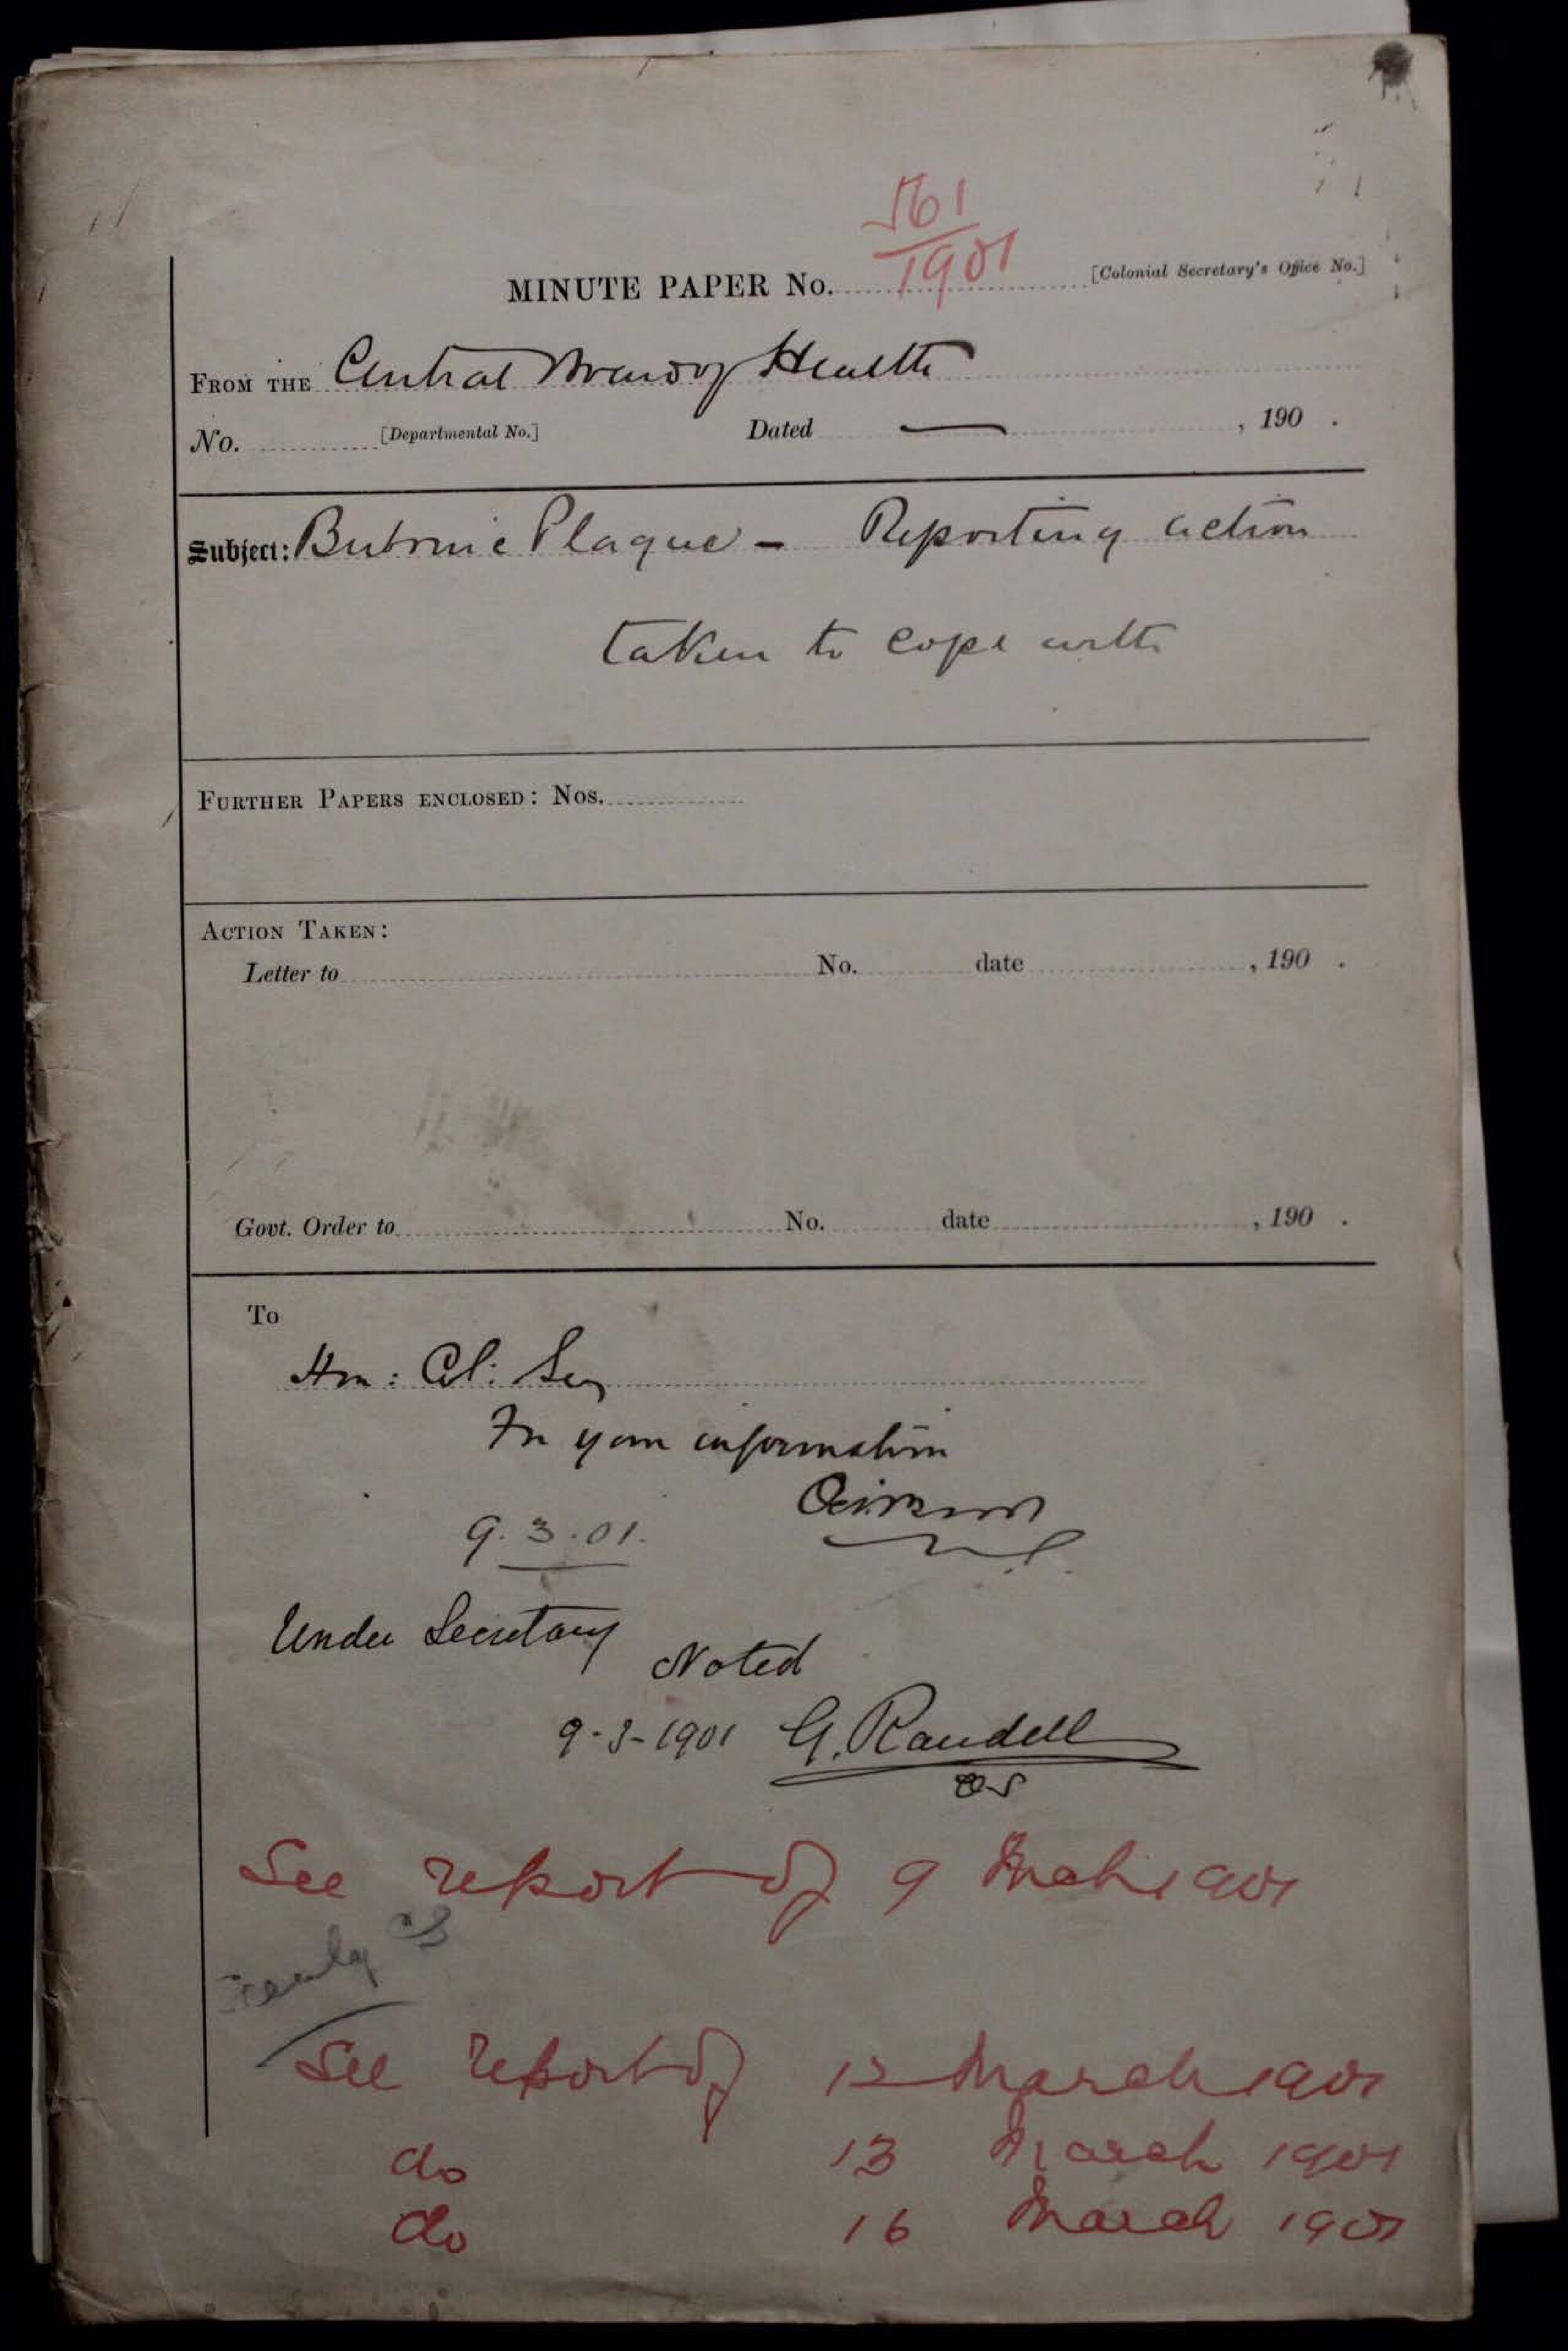 561
1901
MINUTE PAPER No. [Colonial Secretary's Office No.]
FROM THE Central Board of Health
No. [Departmental No.] Dated — , 190 .
Subject: Bubonic Plague - Reporting action
taken to cope with
FURTHER PAPERS ENCLOSED: Nos.
ACTION TAKEN:
Letter to No. date , 190 .
Govt. Order to No. date , 190 .
To
Hon: Col: Secy
For your information
9.3.01.
Under Secretary
Noted
9-3-1901 G. Randell
CS
See report of 9 Mch 1901
See report of 12 March 1901
do 13 March 1901
do 16 March 1901